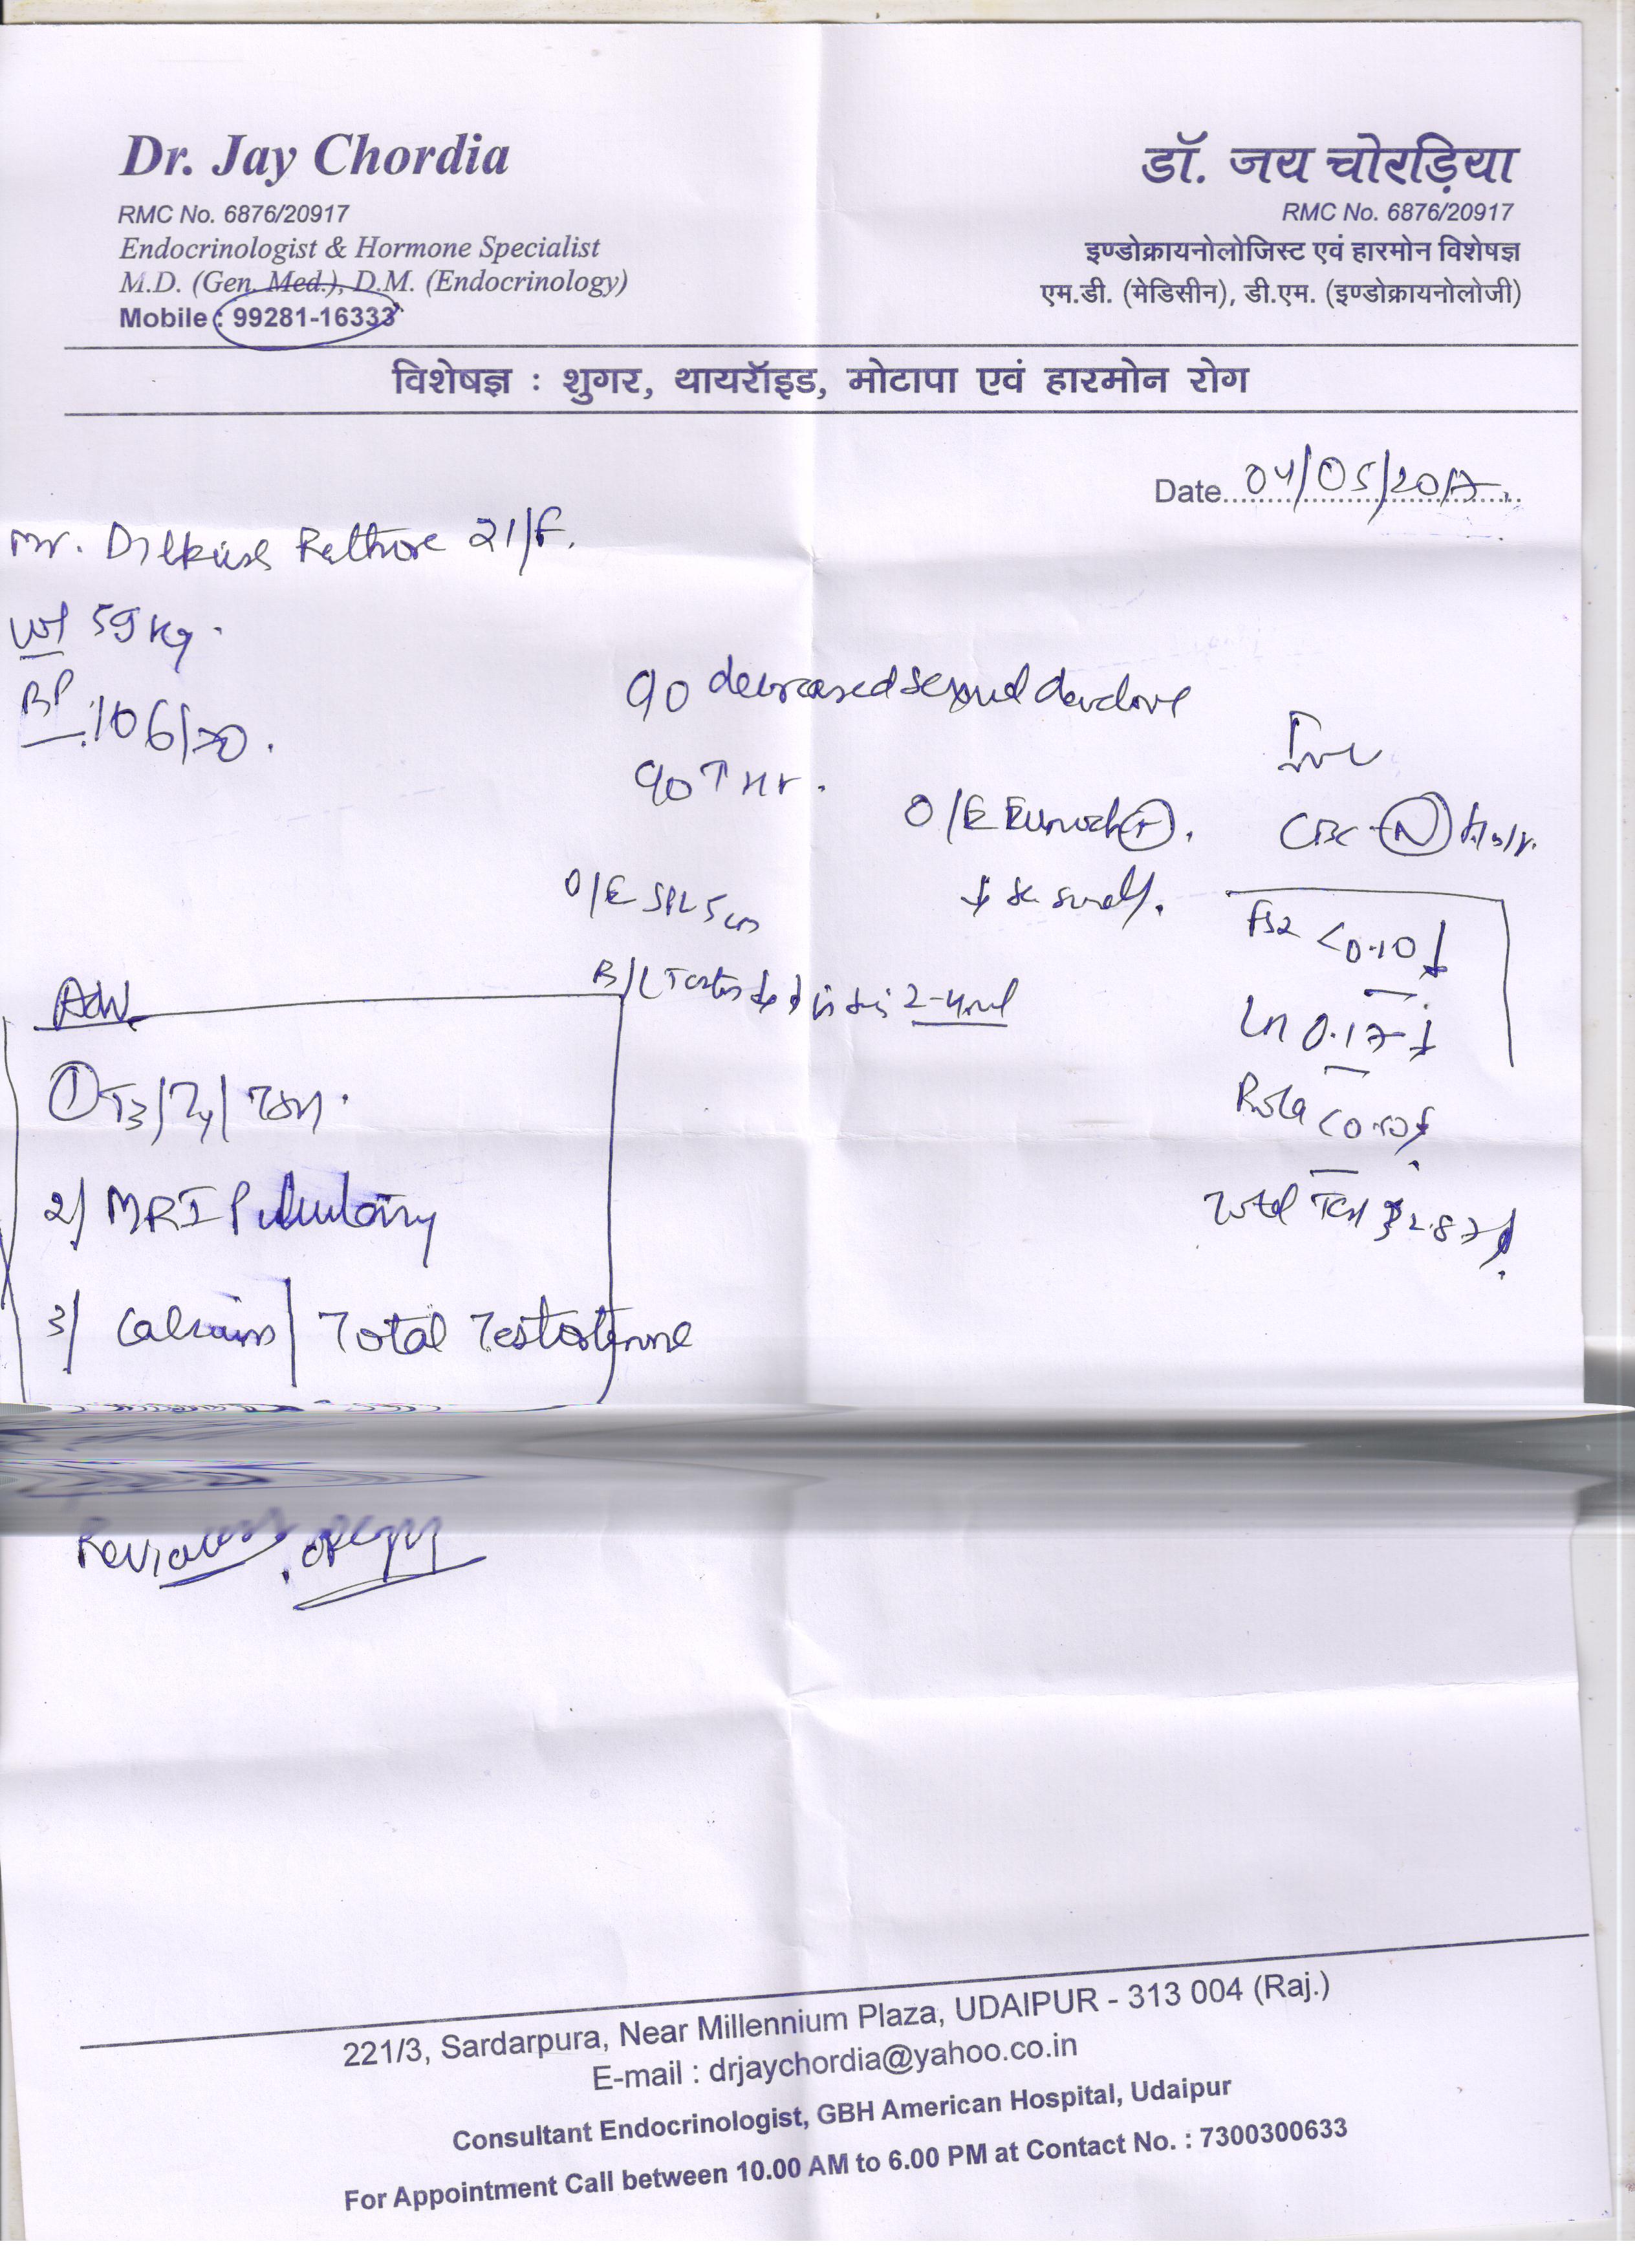 Dr. Jay Chordia
RMC No. 6876/20917
Endocrinologist & Hormone Specialist
M.D. (Gen. Med.), D.M. (Endocrinology)
Mobile : 99281-16333
डॉ. जय चोरड़िया
RMC No. 6876/20917
इण्डोक्रायनोलोजिस्ट एवं हारमोन विशेषज्ञ
एम.डी. (मेडिसीन), डी.एम. (इण्डोक्रायनोलोजी)
विशेषज्ञ : शुगर, थायरॉइड, मोटापा एवं हारमोन रोग
Date 04/05/2017
Mr. Rathore 21/
Wt 59 kg.
BP : 106/70.
decreased sexual
O/E
CBC - N
O/E SPL 5 cm
<0.10 ↓
B/L 2-4ml
LH 0.17 ↓
Adv
① T3/T4/TSH.
<0.50 ↓
2) MRI Pituitary
Total
3) Calcium / Total Testosterone
Review
221/3, Sardarpura, Near Millennium Plaza, UDAIPUR - 313 004 (Raj.)
E-mail : drjaychordia@yahoo.co.in
Consultant Endocrinologist, GBH American Hospital, Udaipur
For Appointment Call between 10.00 AM to 6.00 PM at Contact No. : 7300300633